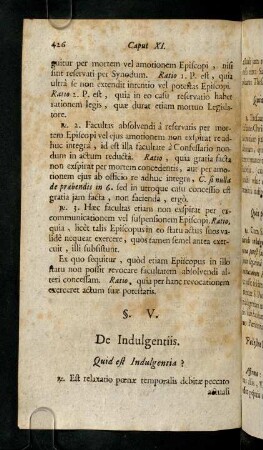 426 Caput XI.
guitur per mortem vel amotionem Episcopi, nisi
sint reservati per Synodum. Ratio 1. P. est, quia
ultrà se non extendit intentio vel potestas Episcopi.
Ratio 2. P. est, quia in eo casu reservatio habet
rationem legis, quæ durat etiam mortuo Legisla-
tore.
℞. 2. Facultas absolvendi â reservatis per mor-
tem Episcopi vel ejus amotionem non exspirat re ad-
huc integra, id est illa facultate à Confessario non-
dum in actum reductâ. Ratio, quia gratia facta
non exspirat per mortem concedentis, aut per amo-
tionem ejus ab officio re adhuc integra, C. si nulla
de præbendis in 6. sed in utroque casu concessio est
gratia jam facta, non facienda, ergò.
℞. 3. Hæc facultas etiam non exspirat per ex-
communicationem vel suspensionem Episcopi Ratio,
quia, licet talis Episcopus in eo statu actus suos va-
lidè nequeat exercere, quos tamen semel antea exer-
cuit, illi subsistunt.
Ex quo sequitur, quòd etiam Episcopus in illo
statu non possit revocare facultatem absolvendi al-
teri concessam. Ratio, quia per hanc revocationem
exerceret actum suæ potestatis.
§. V.
De Indulgentiis.
Quid est Indulgentia?
℞. Est relaxatio pœnæ temporalis debitæ peccato
actuali